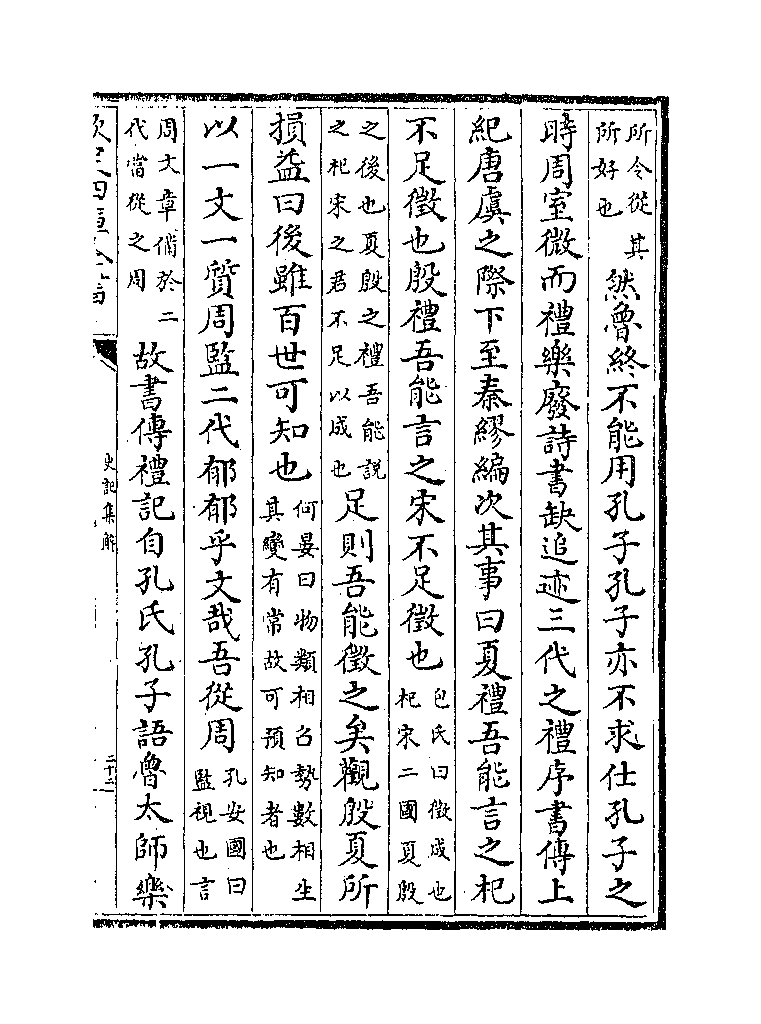 所令從其
所好也
然魯終不能用孔子孔子亦不求仕孔子之
時周室微而禮樂廢詩書缺追迹三代之禮序書傳上
紀唐虞之際下至秦繆編次其事曰夏禮吾能言之杞
不足徵也殷禮吾能言之宋不足徵也
包氏曰徵成也
杞宋二國夏殷
之後也夏殷之禮吾能說
之杞宋之君不足以成也
足則吾能徵之矣觀殷夏所
損益曰後雖百世可知也
何晏曰物類相召勢數相生
其變有常故可預知者也
以一文一質周監二代郁郁乎文哉吾從周
孔安國曰
監視也言
周文章備於二
代當從之周
故書傳禮記自孔氏孔子語魯太師樂
史記集解